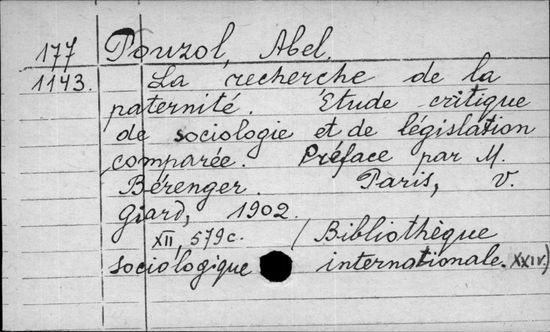 177 Pouzol, Abel.
1143. La recherche de la
paternité. Etude critique
de sociologie et de législation
comparée. Préface par M.
Bérenger. Paris, V.
Giard, 1902.
XII, 579c. (Bibliothèque
sociologique internationale. XXIV.)